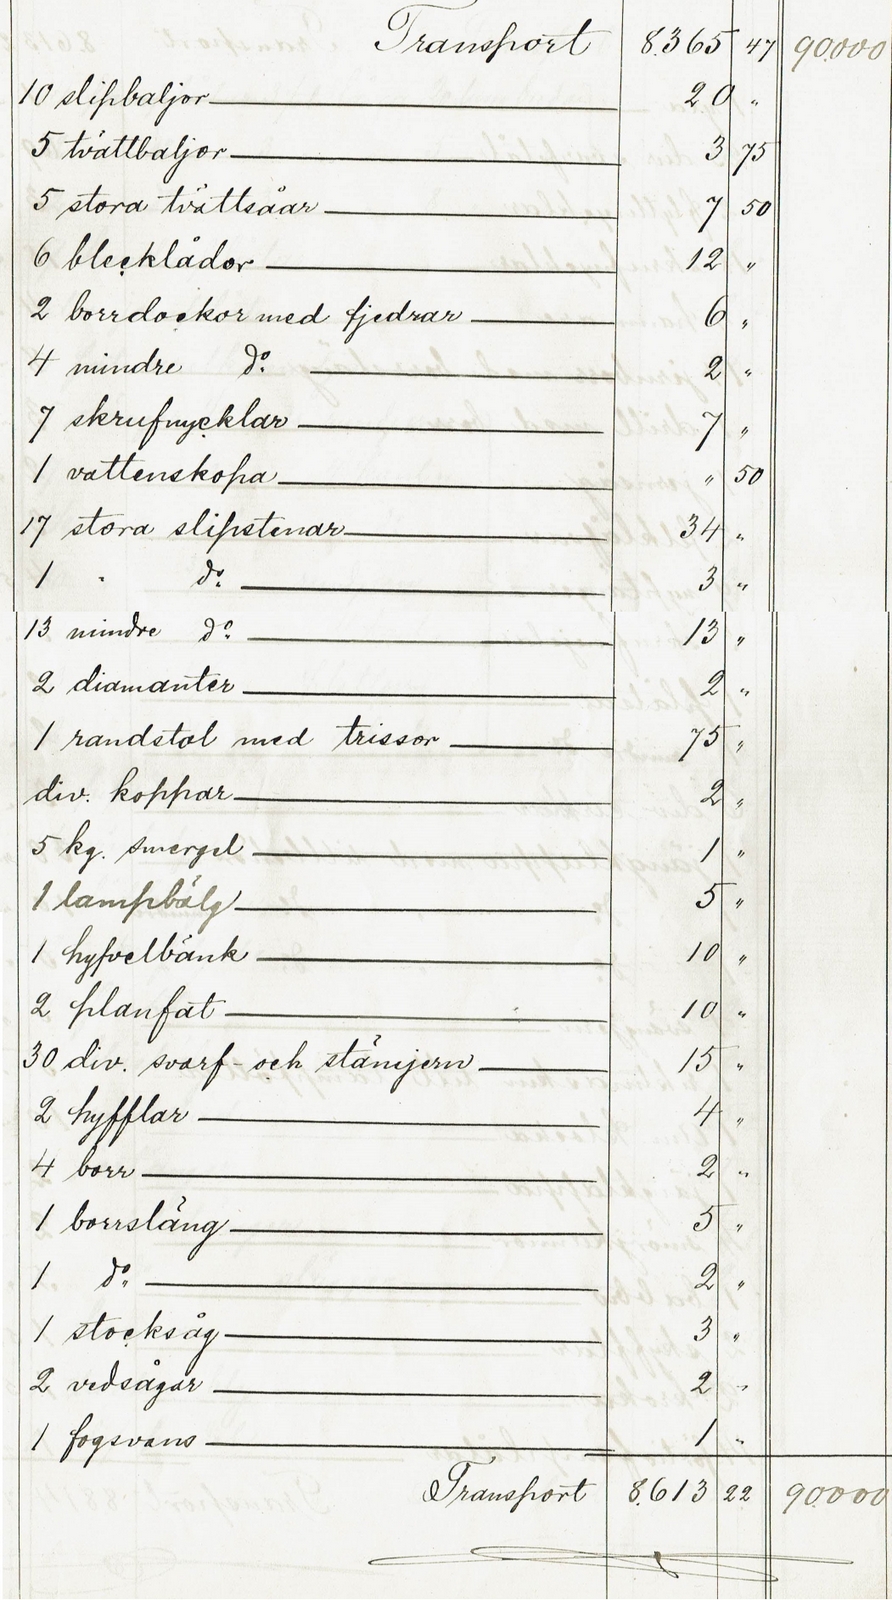 Transport 8.365 47 90.000
10 slipbaljor 20 "
5 tvättbaljor 3 75
5 stora tvättsåar 7 50
6 blecklådor 12 "
2 borrdockor med fjedrar 6 "
4 mindre do 2 "
7 skrufnycklar 7 "
1 vattenskopa " 50
17 stora slipstenar 34 "
1 " do 3 "
13 mindre do 13 "
2 diamanter 2 "
1 randstol med trissor 75 "
div. koppar 2 "
5 kg. smergel 1 "
1 lampbälg 5 "
1 hyfvelbänk 10 "
2 planfat 10 "
30 div. svarf- och stämjern 15 "
2 hyfflar 4 "
4 borr 2 "
1 borrsläng 5 "
1 do 2 "
1 stocksåg 3 "
2 vedsågar 2 "
1 fogsvans 1 "
Transport 8.613 22 90.000